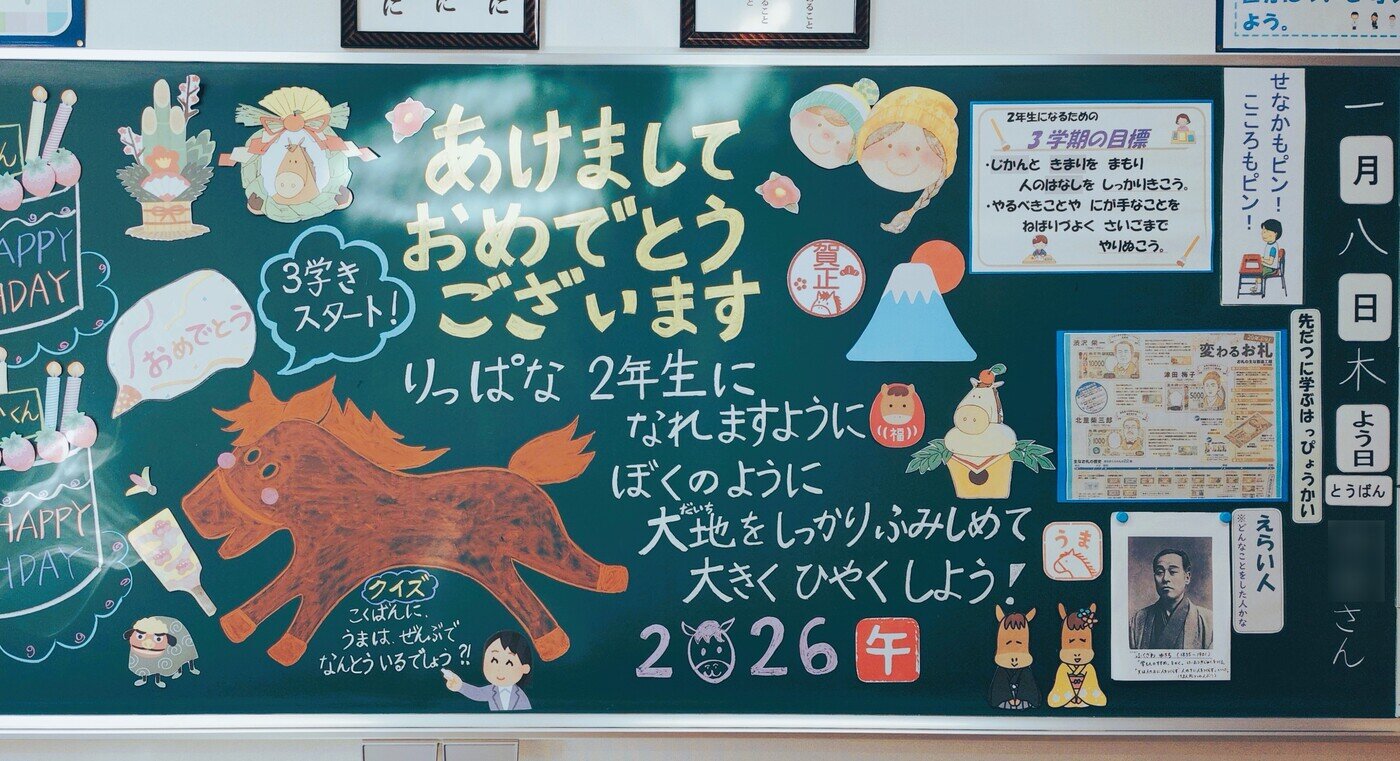 に
に
に
よう。
APPY
HDAY
くん
HAPPY
HDAY
おめでとう
3学き
スタート!
あけまして
おめでとう
ございます
りっぱな 2年生に
なれますように
ぼくのように
大地をしっかりふみしめて
だいち
大きく ひやく しよう!
2 26
午
クイズ
こくばんに、
うまは、ぜんぶで
なんとう いるでしょう?!
賀正
福
うま
2年生になるための
3学期の目標
・じかんと きまりを まもり
人のはなしを しっかりきこう。
・やるべきことや にが手なことを
ねばりづよく さいごまで
やりぬこう。
せなかもピン!
こころもピン!
変わるお札
渋沢 栄一
10000
津田 梅子
5000
北里柴三郎
1000
先だつに学ぶはっぴょうかい
えらい人
※どんなことをした人かな
一月八日木よう日
とうばん
さん